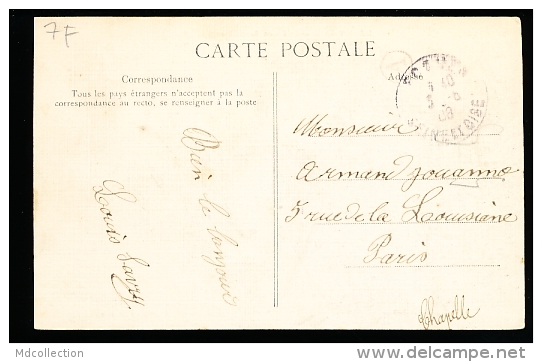 7F
CARTE POSTALE
Correspondance
Tous les pays étrangers n'acceptent pas la
correspondance au recto, se renseigner à la poste
Adresse
SEINE ET OISE
Bien le bonjour
Louis Savry
Monsieur
Armand Jouanno
5 rue de la Louisiane
Paris
Chapelle
Mdcollection
www.delcampe.net